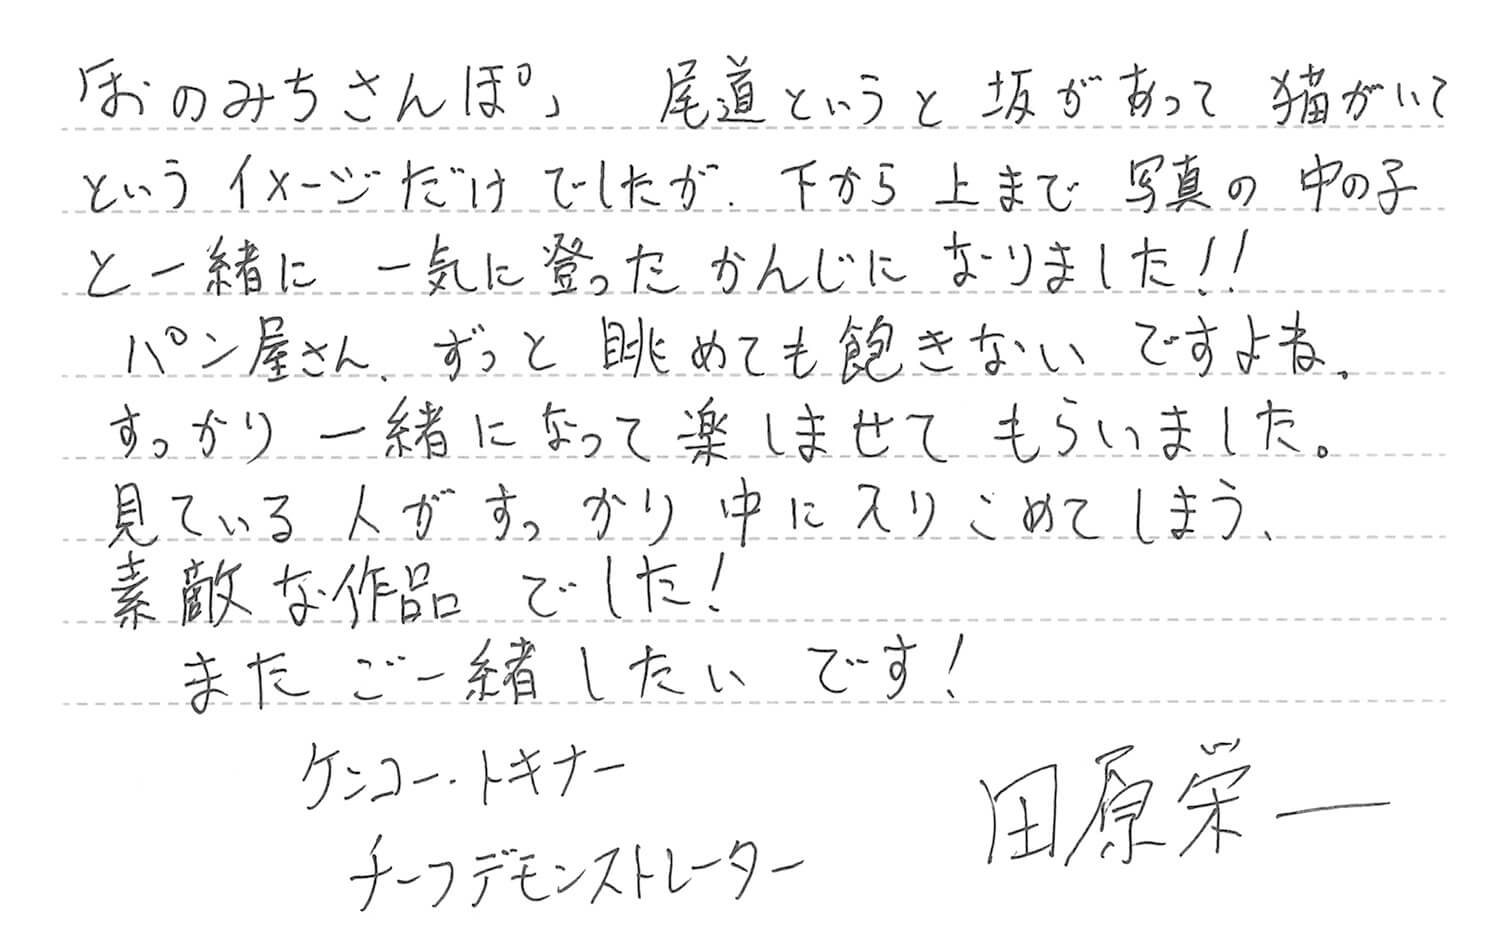 「おのみちさんぽ」 尾道というと 坂があって 猫がいて
というイメージだけでしたが、下から上まで 写真の中の子
と一緒に 一気に登った かんじに なりました!!
パン屋さん、ずっと 眺めても飽きない ですよね。
すっかり 一緒になって楽しませて もらいました。
見ている 人が すっかり 中に入りこめてしまう、
素敵な作品 でした!
また ご一緒したい です!
ケンコー・トキナー
チーフデモンストレーター
田原栄一